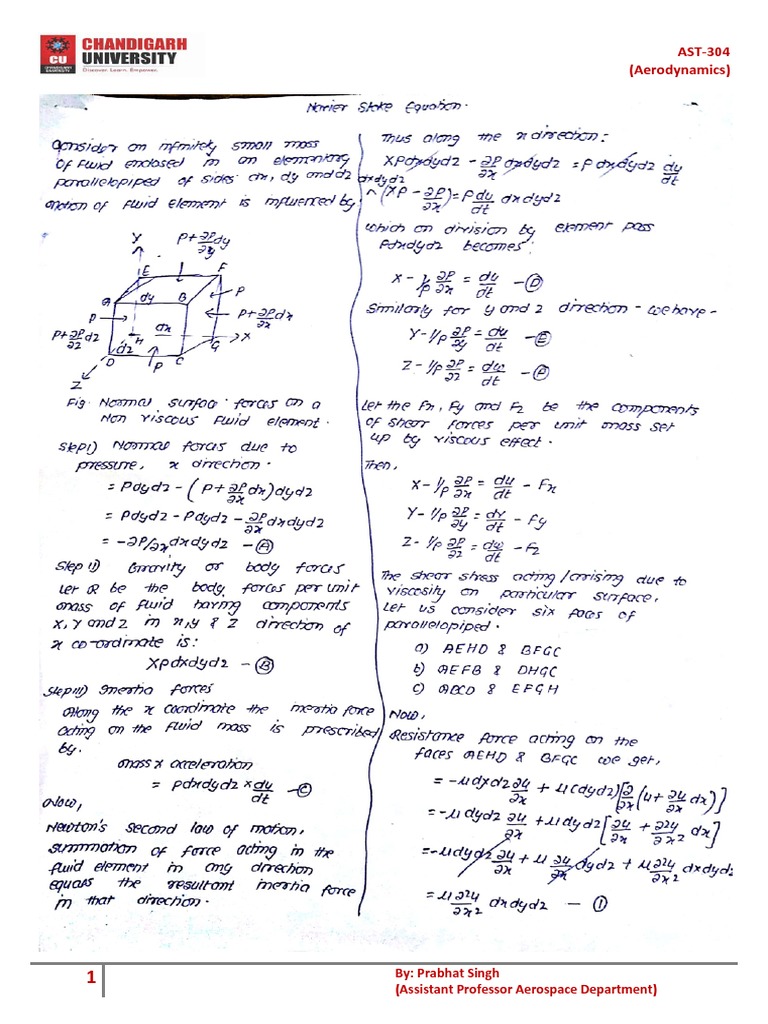 CHANDIGARH
UNIVERSITY
Discover. Learn. Empower.
CU
CHANDIGARH
UNIVERSITY
AST-304
(Aerodynamics)
Navier Stoke Equation.
Consider an infinitely small mass
of fluid enclosed in an elementary
parallelopiped of sides dx, dy and dz
motion of fluid element is influenced by
Y
P+∂P/∂y dy
E
F
A
dy
B
P
P
P+∂P/∂x dx
dx
P+∂P/∂z dz
dz
H
X
G
D
P
C
Z
Fig. Normal surface forces on a
Non viscous fluid element.
Step I) Normal forces due to
pressure, x direction.
= Pdydz - (P+∂P/∂x dx)dydz
= Pdydz - Pdydz - ∂P/∂x dxdydz
= -∂P/∂x dxdydz - Ⓐ
Step II) Gravity or body forces
Let R be the body forces per unit
mass of fluid having components
X, Y and Z in x, y & z direction of
x co-ordinate is:
Xρdxdydz - Ⓑ
Step III) Inertia forces
Along the x coordinate the inertia force
acting on the fluid mass is prescribed
by.
mass x acceleration
= ρdxdydz x du/dt - Ⓒ
Now,
Newton's second law of motion,
summation of force acting in the
fluid element in any direction
equals the resultant inertia force
in that direction.
Thus along the x direction:
Xρdxdydz - ∂P/∂x dxdydz = ρdxdydz du/dt
dxdydz (Xρ - ∂P/∂x) = ρ du/dt dxdydz
which on division by element pass
ρdxdydz becomes:
X - 1/ρ ∂P/∂x = du/dt - Ⓓ
Similarly for y and z direction - we have -
Y - 1/ρ ∂P/∂y = du/dt - Ⓔ
Z - 1/ρ ∂P/∂z = dw/dt - Ⓕ
Let the Fx, Fy and Fz be the components
of shear forces per unit mass set
up by viscous effect.
Then,
X - 1/ρ ∂P/∂x = du/dt - Fx
Y - 1/ρ ∂P/∂y = dv/dt - Fy
Z - 1/ρ ∂P/∂z = dw/dt - Fz
The shear stress acting/arising due to
viscosity on particular surface,
Let us consider six faces of
parallelopiped.
a) AEHD & BFGC
b) AEFB & DHGC
c) ABCD & EFGH
Now,
Resistance force acting on the
faces AEHD & BFGC we get,
= -μdxdz ∂u/∂x + μ(dydz)[∂/∂x (u+∂u/∂x dx)]
= -μdydz ∂u/∂x + μdydz [∂u/∂x + ∂²u/∂x² dx]
= -μdydz ∂u/∂x + μ ∂u/∂x dydz + μ ∂²u/∂x² dxdydz
= μ ∂²u/∂x² dxdydz - ①
1
By: Prabhat Singh
(Assistant Professor Aerospace Department)